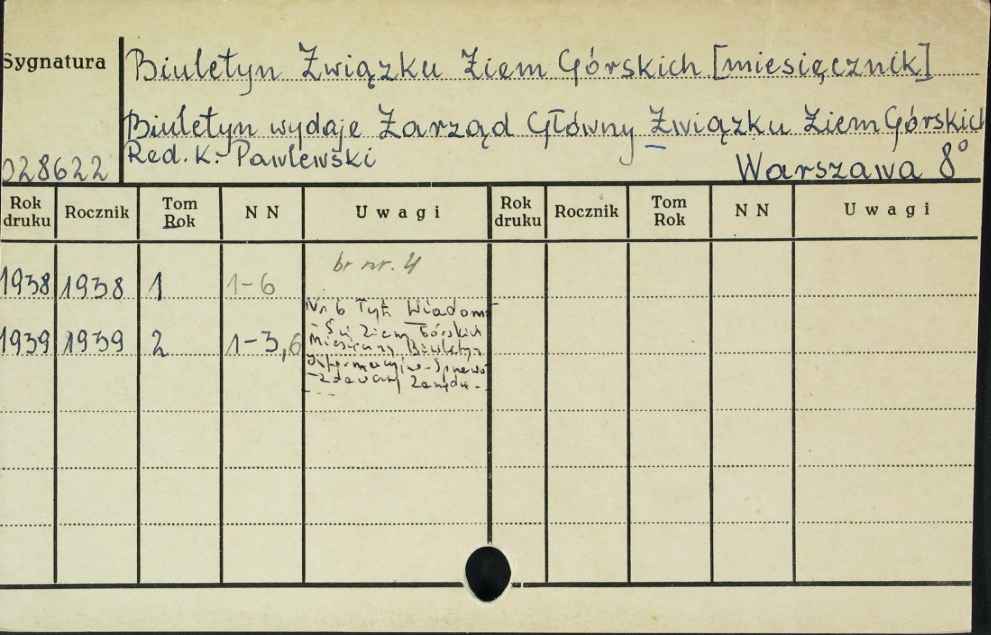 Sygnatura
Biuletyn Związku Ziem Górskich [miesięcznik]
Biuletyn wydaje Zarząd Główny Związku Ziem Górskich
Red. K. Pawlewski
028622
Warszawa 8°
Rok druku Rocznik Tom Rok N N Uwagi Rok druku Rocznik Tom Rok N N Uwagi
br nr. 4
1938 1938 1 1-6
Nr 6 Tyt. Wiadom-
-ści Ziem Górskich
1939 1939 2 1-3,6
Miesięczny Biuletyn
Informacyjno-Sprawo-
-zdawczy Zarządu-